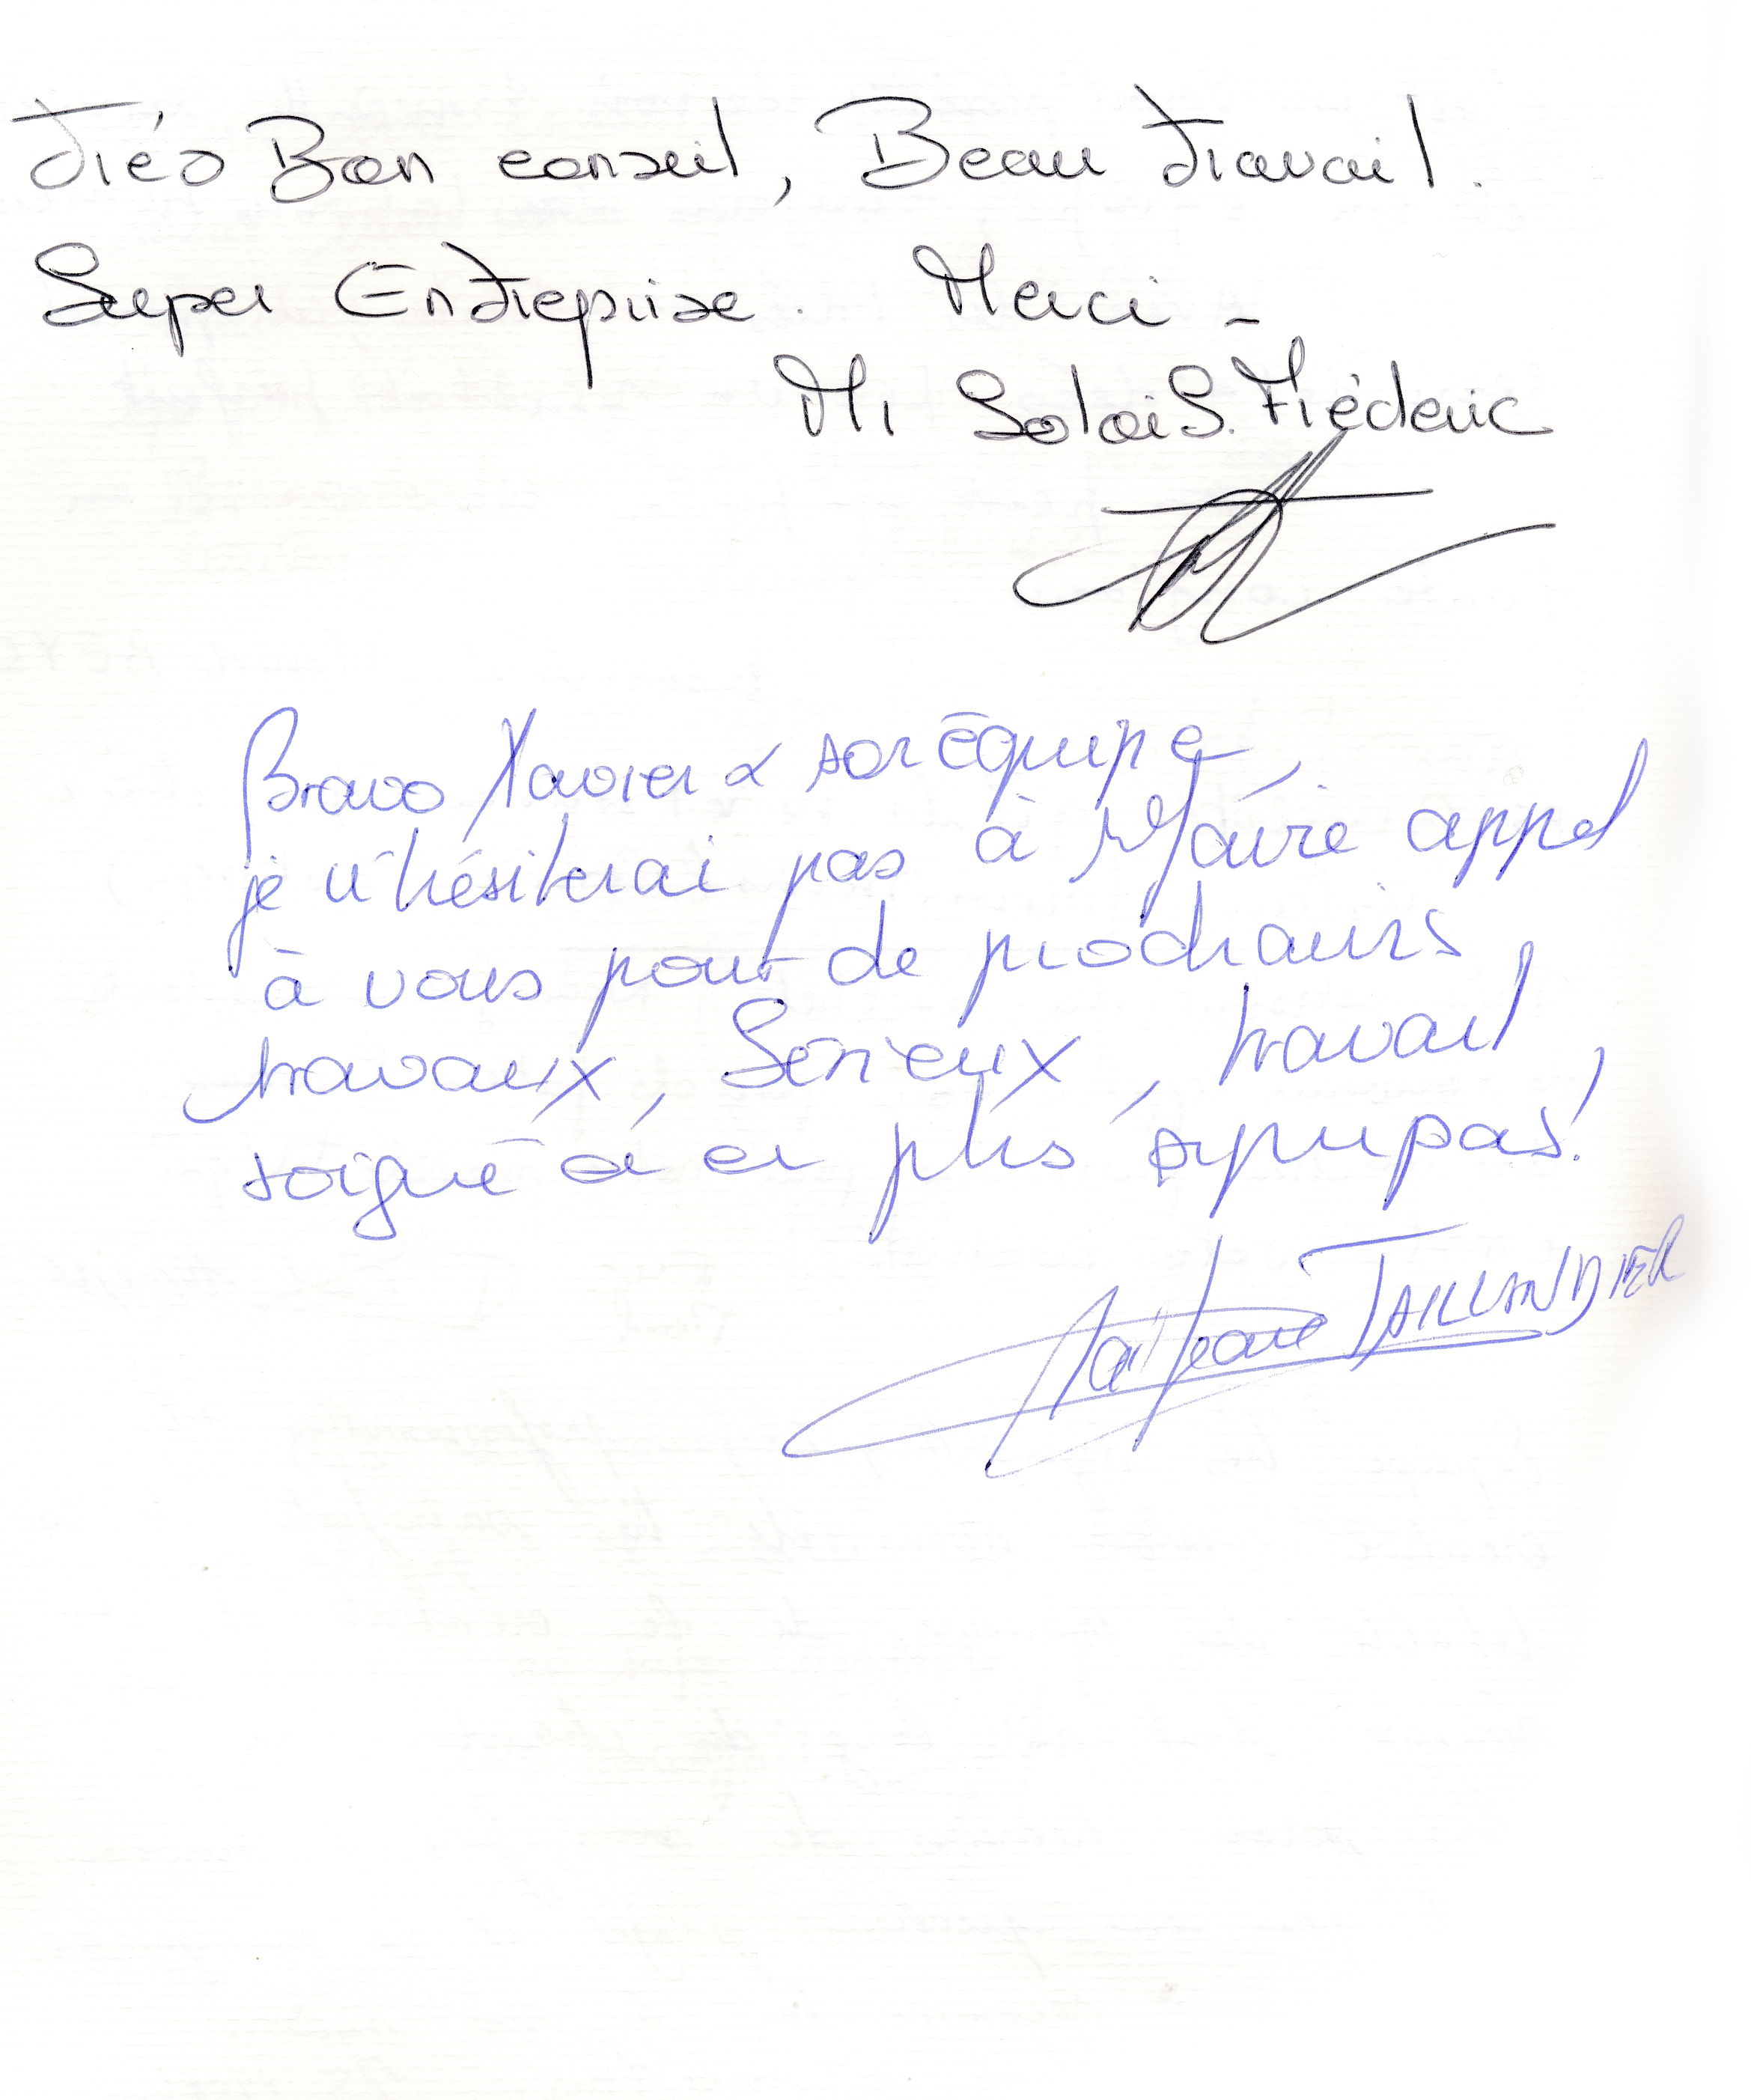 Très Bon conseil, Beau travail.
Super Entreprise. Merci -
Mr Solois. Fréderic
Bravo Xavier & son équipe,
je n'hésiterai pas à faire appel
à vous pour de prochains
travaux, Sérieux, travail
soigné & en plus sympas!
TAILLANDIER